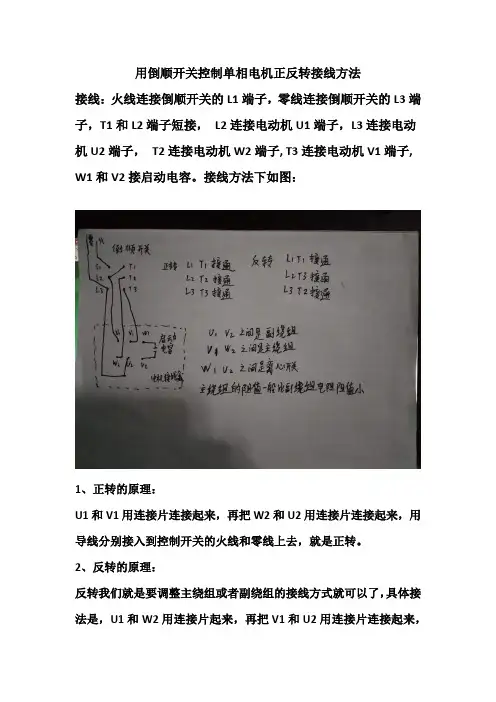 用倒顺开关控制单相电机正反转接线方法
接线：火线连接倒顺开关的 L1 端子，零线连接倒顺开关的 L3 端
子，T1 和 L2 端子短接， L2 连接电动机 U1 端子，L3 连接电动
机 U2 端子， T2 连接电动机 W2 端子, T3 连接电动机 V1 端子,
W1 和 V2 接启动电容。接线方法下如图：
倒顺开关
L1 T1
L2 T2
L3 T3
正转 L1 T1 接通
L2 T2 接通
L3 T3 接通
反转 L1 T1 接通
L2 T3 接通
L3 T2 接通
U1 V1 W1
启动电容
W2 U2 V2
U1 V2 之间是副绕组
V1 W2 之间是主绕组
W1 U2 之间是离心开关
主绕组的阻值一般比副绕组电阻阻值小
1、正转的原理：
U1 和 V1 用连接片连接起来，再把 W2 和 U2 用连接片连接起来，用
导线分别接入到控制开关的火线和零线上去，就是正转。
2、反转的原理：
反转我们就是要调整主绕组或者副绕组的接线方式就可以了，具体接
法是，U1 和 W2 用连接片起来，再把 V1 和 U2 用连接片连接起来，